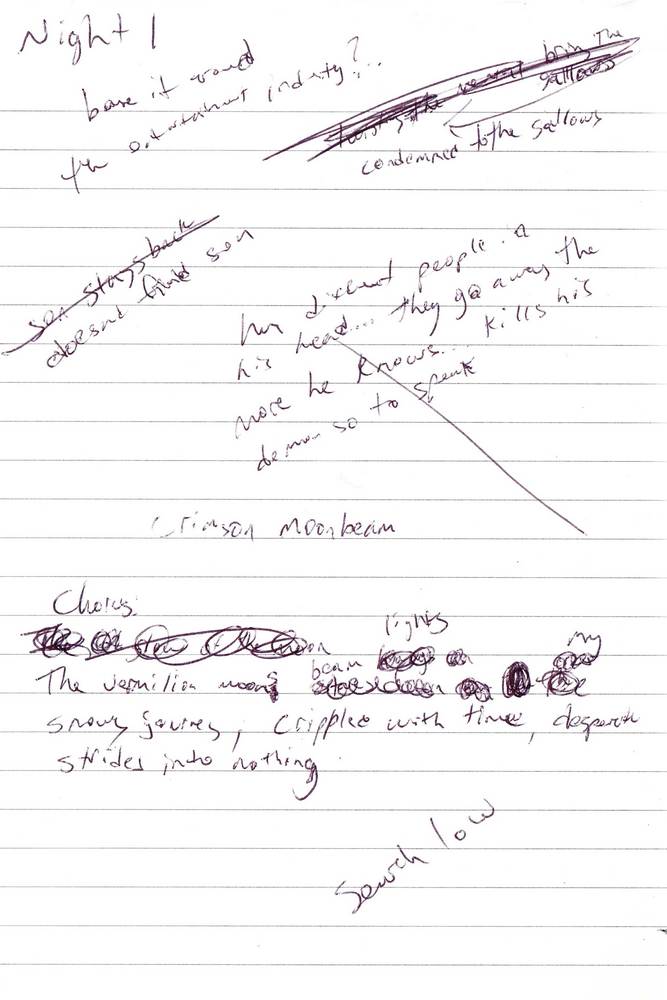 Night 1
base it around
the entertainment industry?...
bring the
gallows
condemned to the gallows
son stays back
doesnt find son
his head... they go away the
more he knows... kills his
so to speak
Crimson Moonbeam
Chorus:
lights
my
beam
The vermilion moons
snowy journey, crippled with time, desperate
strides into nothing
Search low